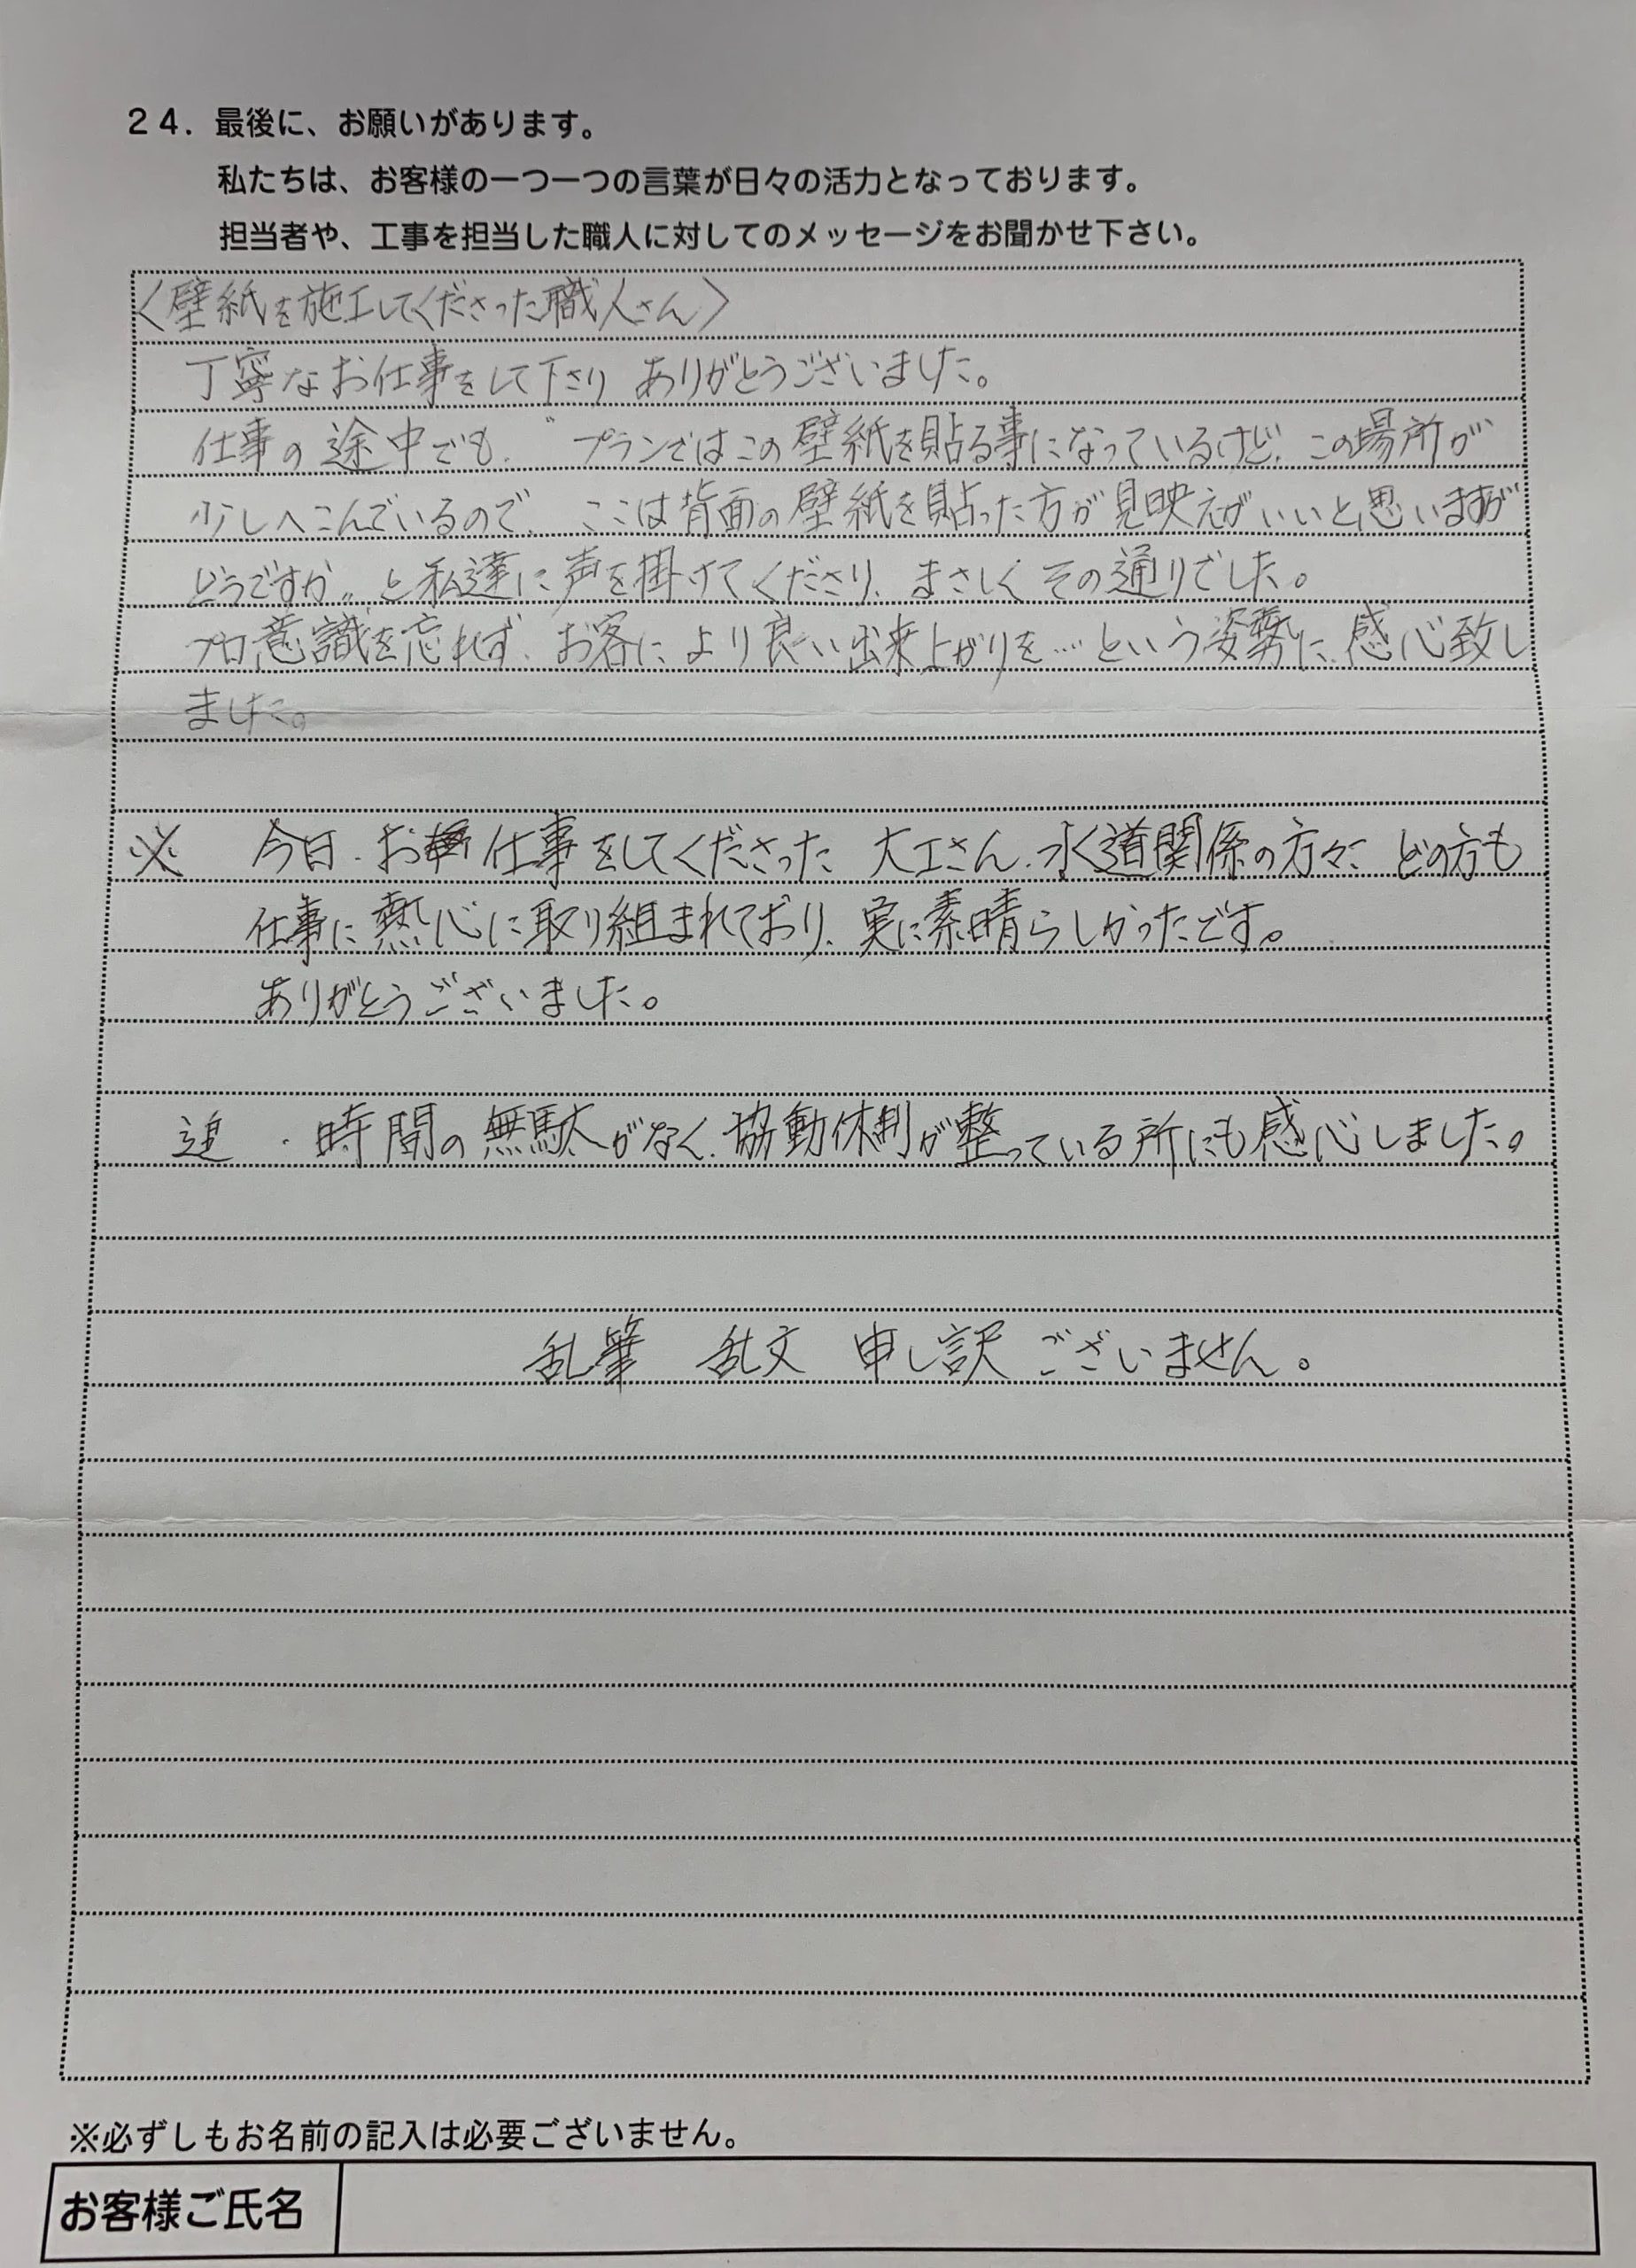 24. 最後に、お願いがあります。
私たちは、お客様の一つ一つの言葉が日々の活力となっております。
担当者や、工事を担当した職人に対してのメッセージをお聞かせ下さい。
〈壁紙を施工してくださった職人さん〉
丁寧なお仕事をして下さり ありがとうございました。
仕事の途中でも、〝プランではこの壁紙を貼る事になっているけど、この場所が
少しへこんでいるので、ここは背面の壁紙を貼った方が見映えがいいと思いますが
どうですか〟と私達に声を掛けてくださり、まさしくその通りでした。
プロ意識を忘れず、お客により良い出来上がりを…という姿勢に感心致し
ました。
※ 今日、お仕事をしてくださった 大工さん、水道関係の方々、どの方も
仕事に熱心に取り組まれており、実に素晴らしかったです。
ありがとうございました。
追 ・時間の無駄がなく、協動体制が整っている所にも感心しました。
乱筆 乱文 申し訳ございません。
※必ずしもお名前の記入は必要ございません。
お客様ご氏名